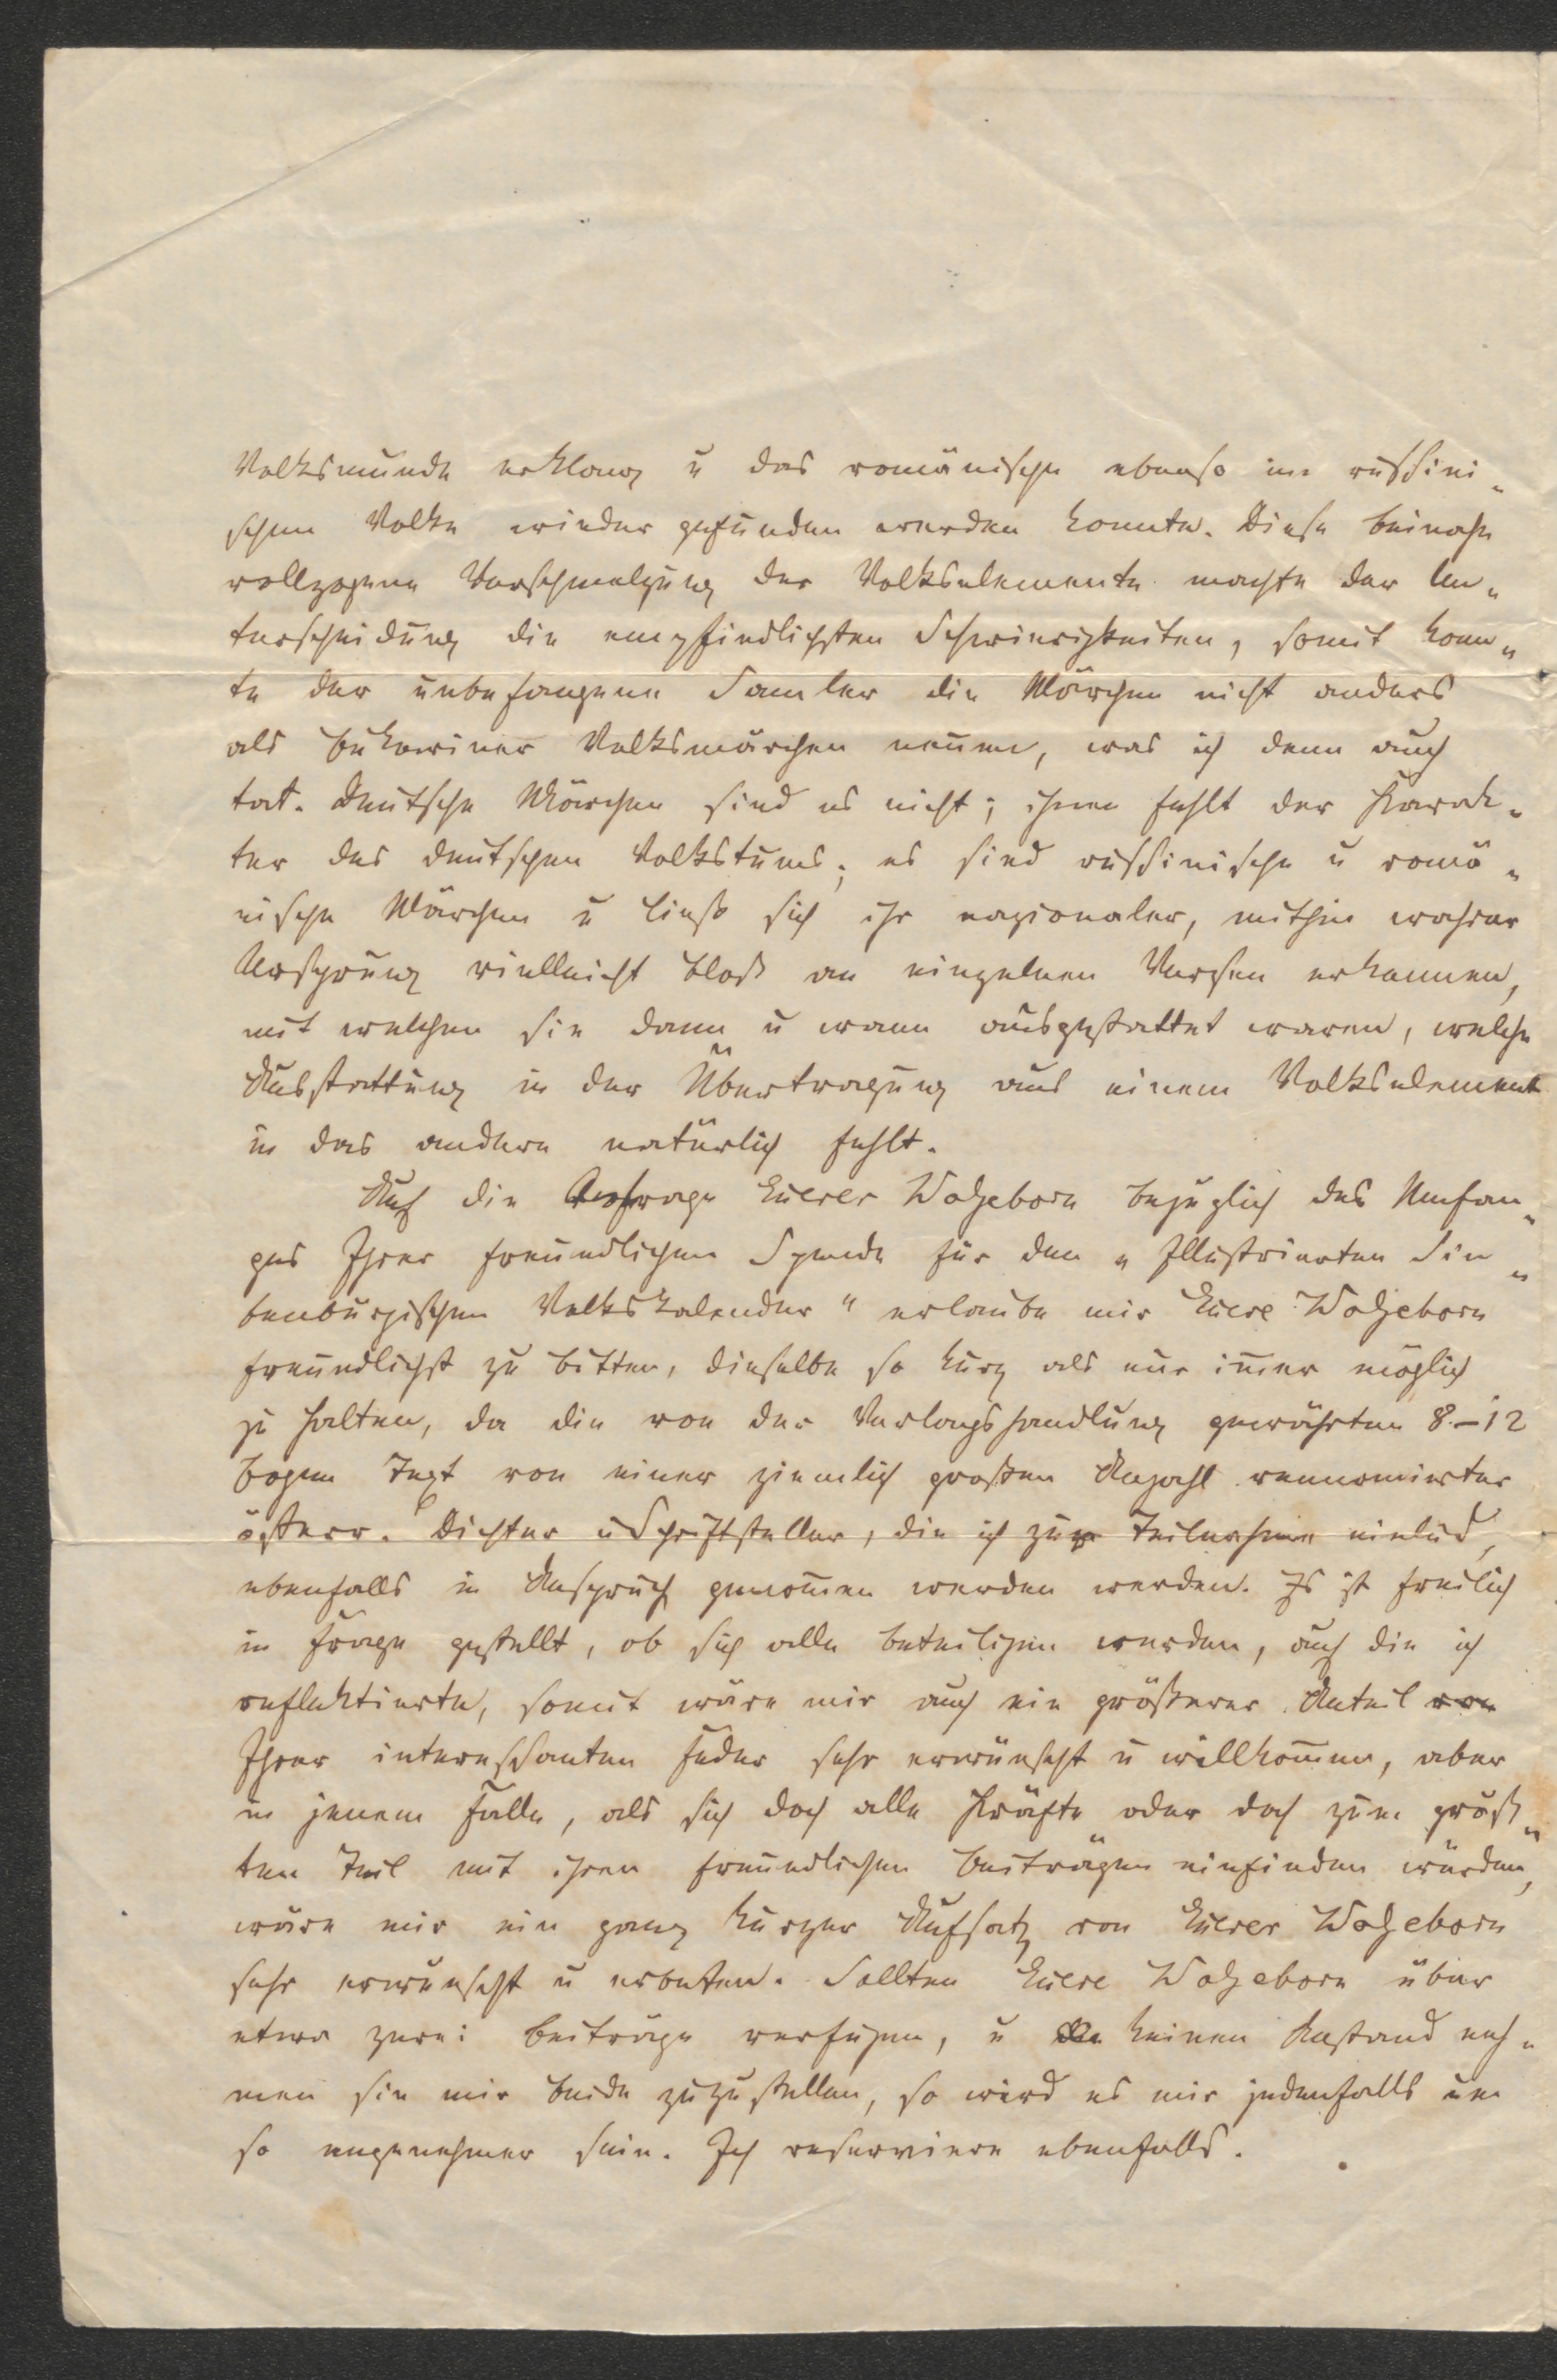 Volksmunde erklang u das romänische ebenso im russini„
schen Volke wieder gefunden werden konnte. Diese beinahe
vollzogene Verschmelzung der Volkselemente machte der Un„
terscheidung die empfindlichsten Schwierigkeiten, somit konn„
te der unbefangene Samler die Märchen nicht anders
als bukowiner Volksmärchen nennen, was ich denn auch
tat. Deutsche Märchen sind es nicht; ihnen fehlt der Karak„
ter des deutschen Volkstums; es sind russinische u romä„
nische Märchen u ließe sich ihr nazionaler, mithin wahrer
Ursprung vielleicht blos an einzelnen Versen erkennen,
mit welchen sie dann u wann ausgestattet waren, welche
Ausstattung in der Übertragung aus einem Volkselement
in das andere natürlich fehlt.
Auf die Anfrage Euerer Wolgeborn bezüglich des Umfan„
ges Ihrer freundlichen Spende für den „Illustrierten Sie„
benbürgischen Volkskalender" erlaube mir Euere Wolgeborn
freundlichst zu bitten, dieselbe so kurz als nur im̄er möglich
zu halten, da die von der Verlagshandlung gewährten 8–12
Bogen Text von einer ziemlich großen Anzahl rennomierter
österr. Dichter u Schriftsteller, die ich zur Teilnahme einlud,
ebenfalls in Anspruch genom̄en werden werden. Es ist freilich
in Frage gestellt, ob sich alle beteiligen werden, auf die ich
reflektierte, somit wäre mir auch ein größerer Anteil von
Ihrer interessanten Feder sehr erwünscht u willkom̄en, aber
in jenem Falle, als sich doch alle Kräfte oder doch zum größ„
ten Teil mit ihren freundlichen Beiträgen einfinden würden,
wäre mir ein ganz kurzer Aufsatz von Euerer Wolgeborn
sehr erwünscht u erbeten. Sollten Euere Wolgeborn über
etwa zwei Beiträge verfügen, u keinen Anstand neh„
men sie mir beide zuzustellen, so wird es mir jedenfalls um
so angenehmer sein. Ich reserviere ebenfalls.